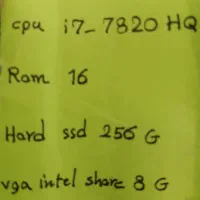 cpu i7-7820 HQ
Ram 16
Hard ssd 256 G
vga intel share 8 G